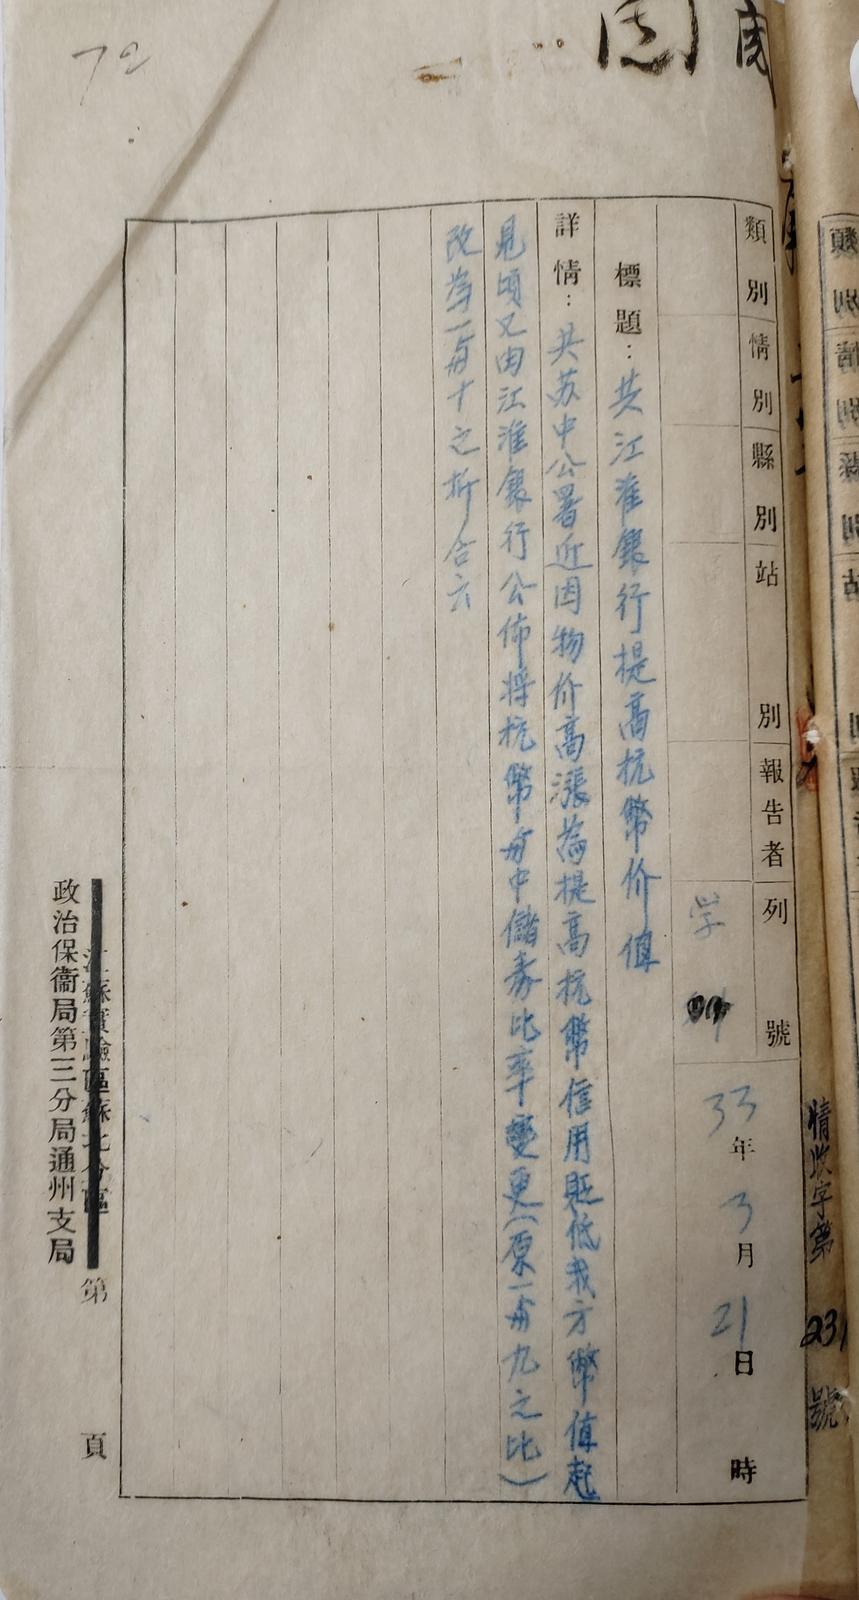 類別 情別 縣別 站別 報告者 列號
学
33年3月21日 時
標題：共江淮銀行提高抗幣价值
詳情：共苏中公署近因物价高漲為提高抗幣信用貶低我方幣值起
見頃又由江淮銀行公佈将抗幣与中儲券比率變更(原一与九之比)
改為一与十之折合云
江蘇實驗區蘇北分區
政治保衞局第三分局通州支局
第 頁
情收字第231號
72